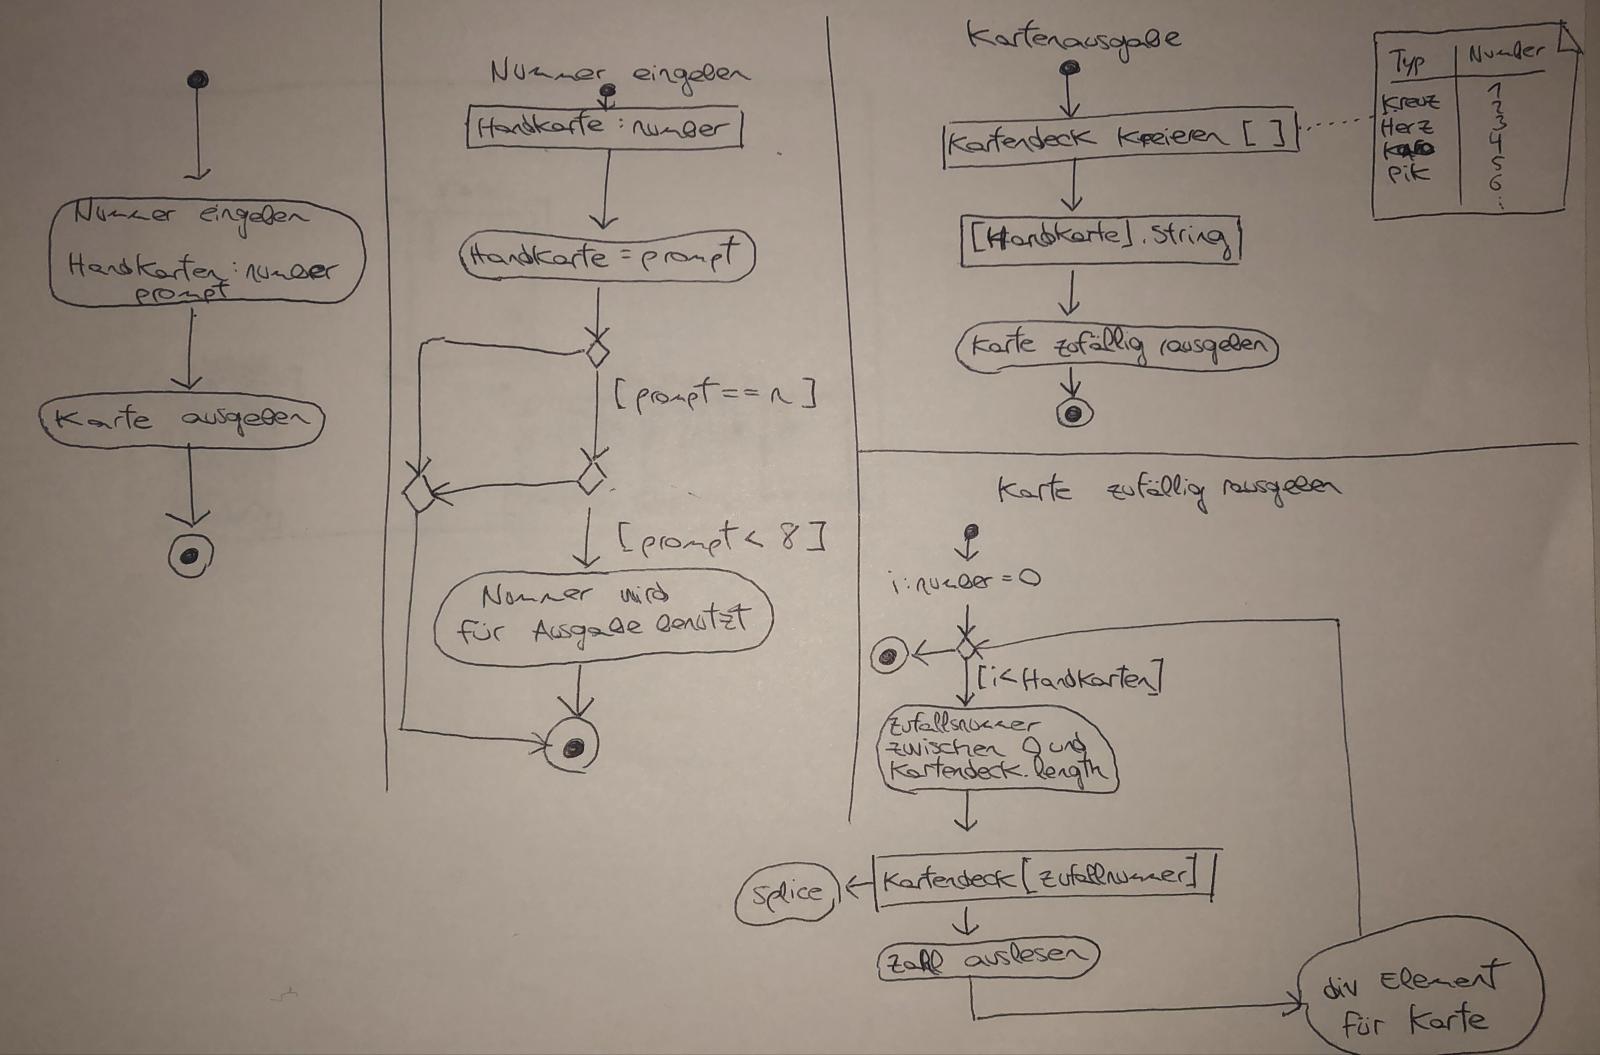 Nummer eingeben
Handkarten : number
prompt
Karte ausgeben
Nummer eingeben
Handkarte : number
Handkarte = prompt
[prompt == n]
[prompt < 8]
Nummer wird
für Ausgabe benutzt
Kartenausgabe
Kartendeck kreieren [ ]
[Handkarte].String
Karte zufällig rausgeben
Typ Number
Kreuz 1
Herz 2
3
Pik 4
5
6
:
Karte zufällig rausgeben
i : number = 0
[i < Handkarten]
Zufallsnummer
zwischen 0 und
Kartendeck.length
Kartendeck [zufallnummer]
splice
Zahl auslesen
div Element
für Karte